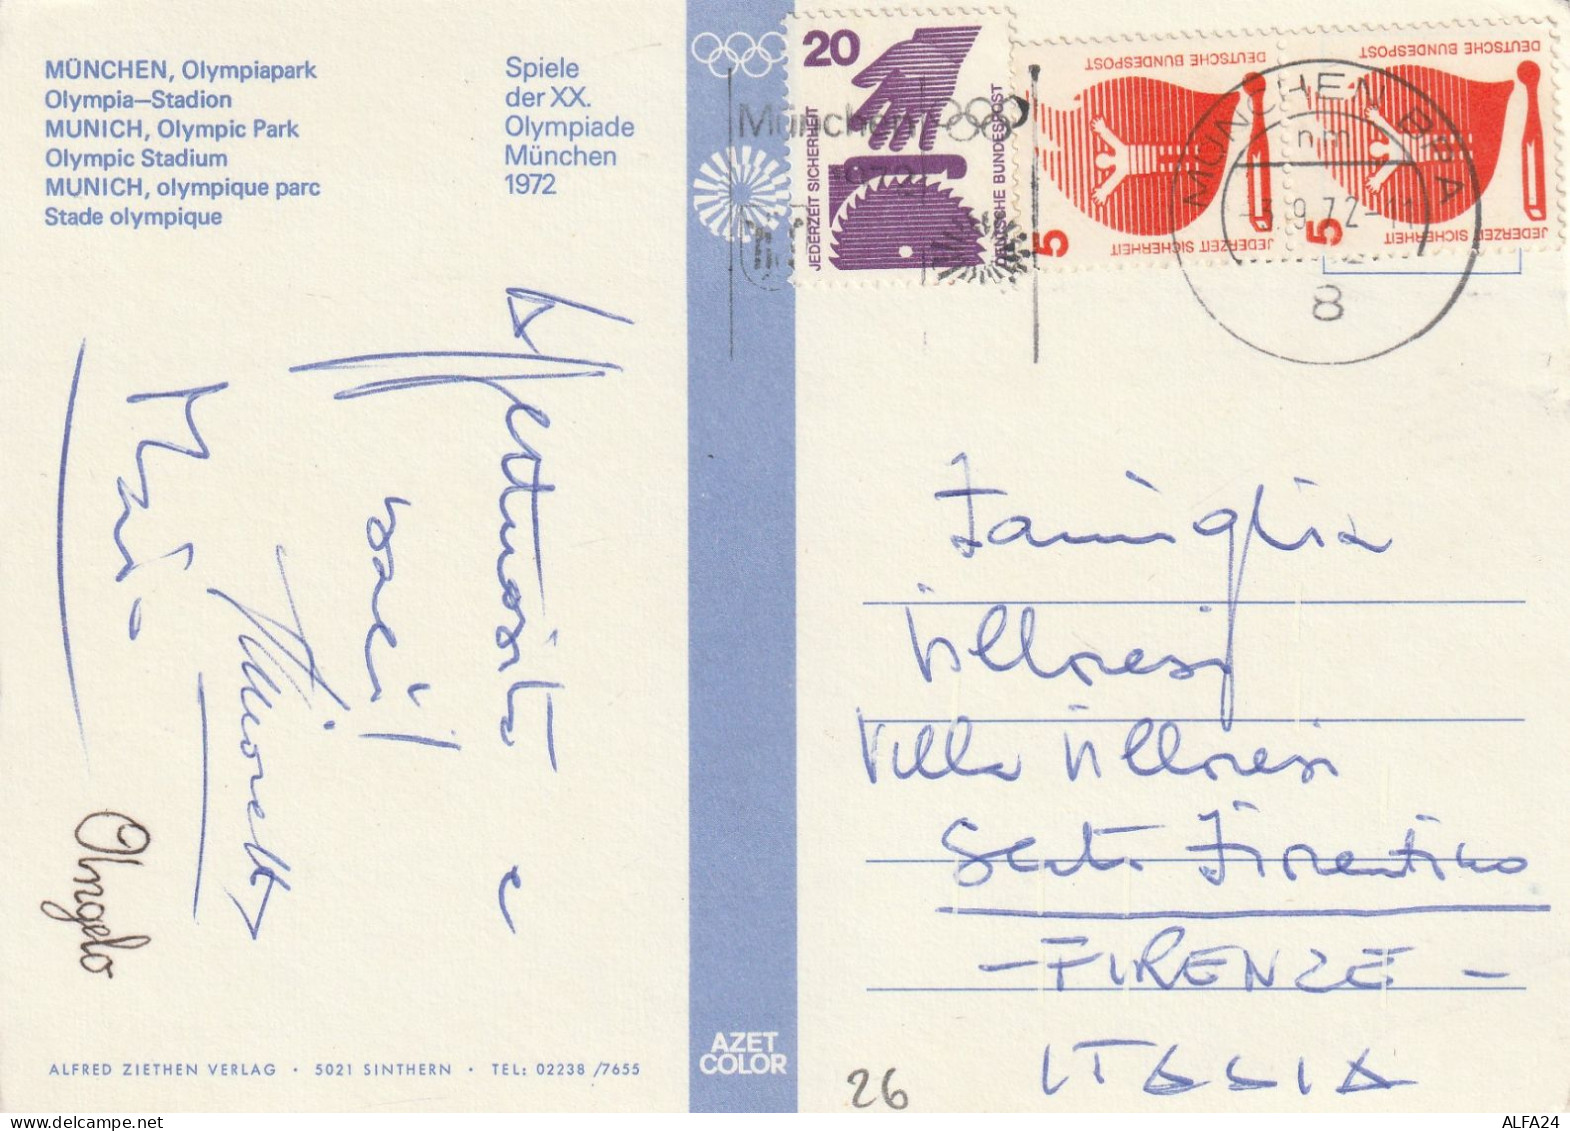 MÜNCHEN, Olympiapark
Olympia—Stadion
MUNICH, Olympic Park
Olympic Stadium
MUNICH, olympique parc
Stade olympique
Spiele
der XX.
Olympiade
München
1972
20
JEDERZEIT SICHERHEIT
DEUTSCHE BUNDESPOST
DEUTSCHE BUNDESPOST
5
JEDERZEIT SICHERHEIT
DEUTSCHE BUNDESPOST
5
JEDERZEIT SICHERHEIT
München
1972
MÜNCHEN BPA
nm
9.72-11
8
Affettuosità e
baci!
Mario
Angelo
Famiglia
Villoresi
Villa Villoresi
Sesto Fiorentino
- FIRENZE -
ITALIA
ALFRED ZIETHEN VERLAG · 5021 SINTHERN · TEL: 02238 /7655
AZET
COLOR
26
ALFA24